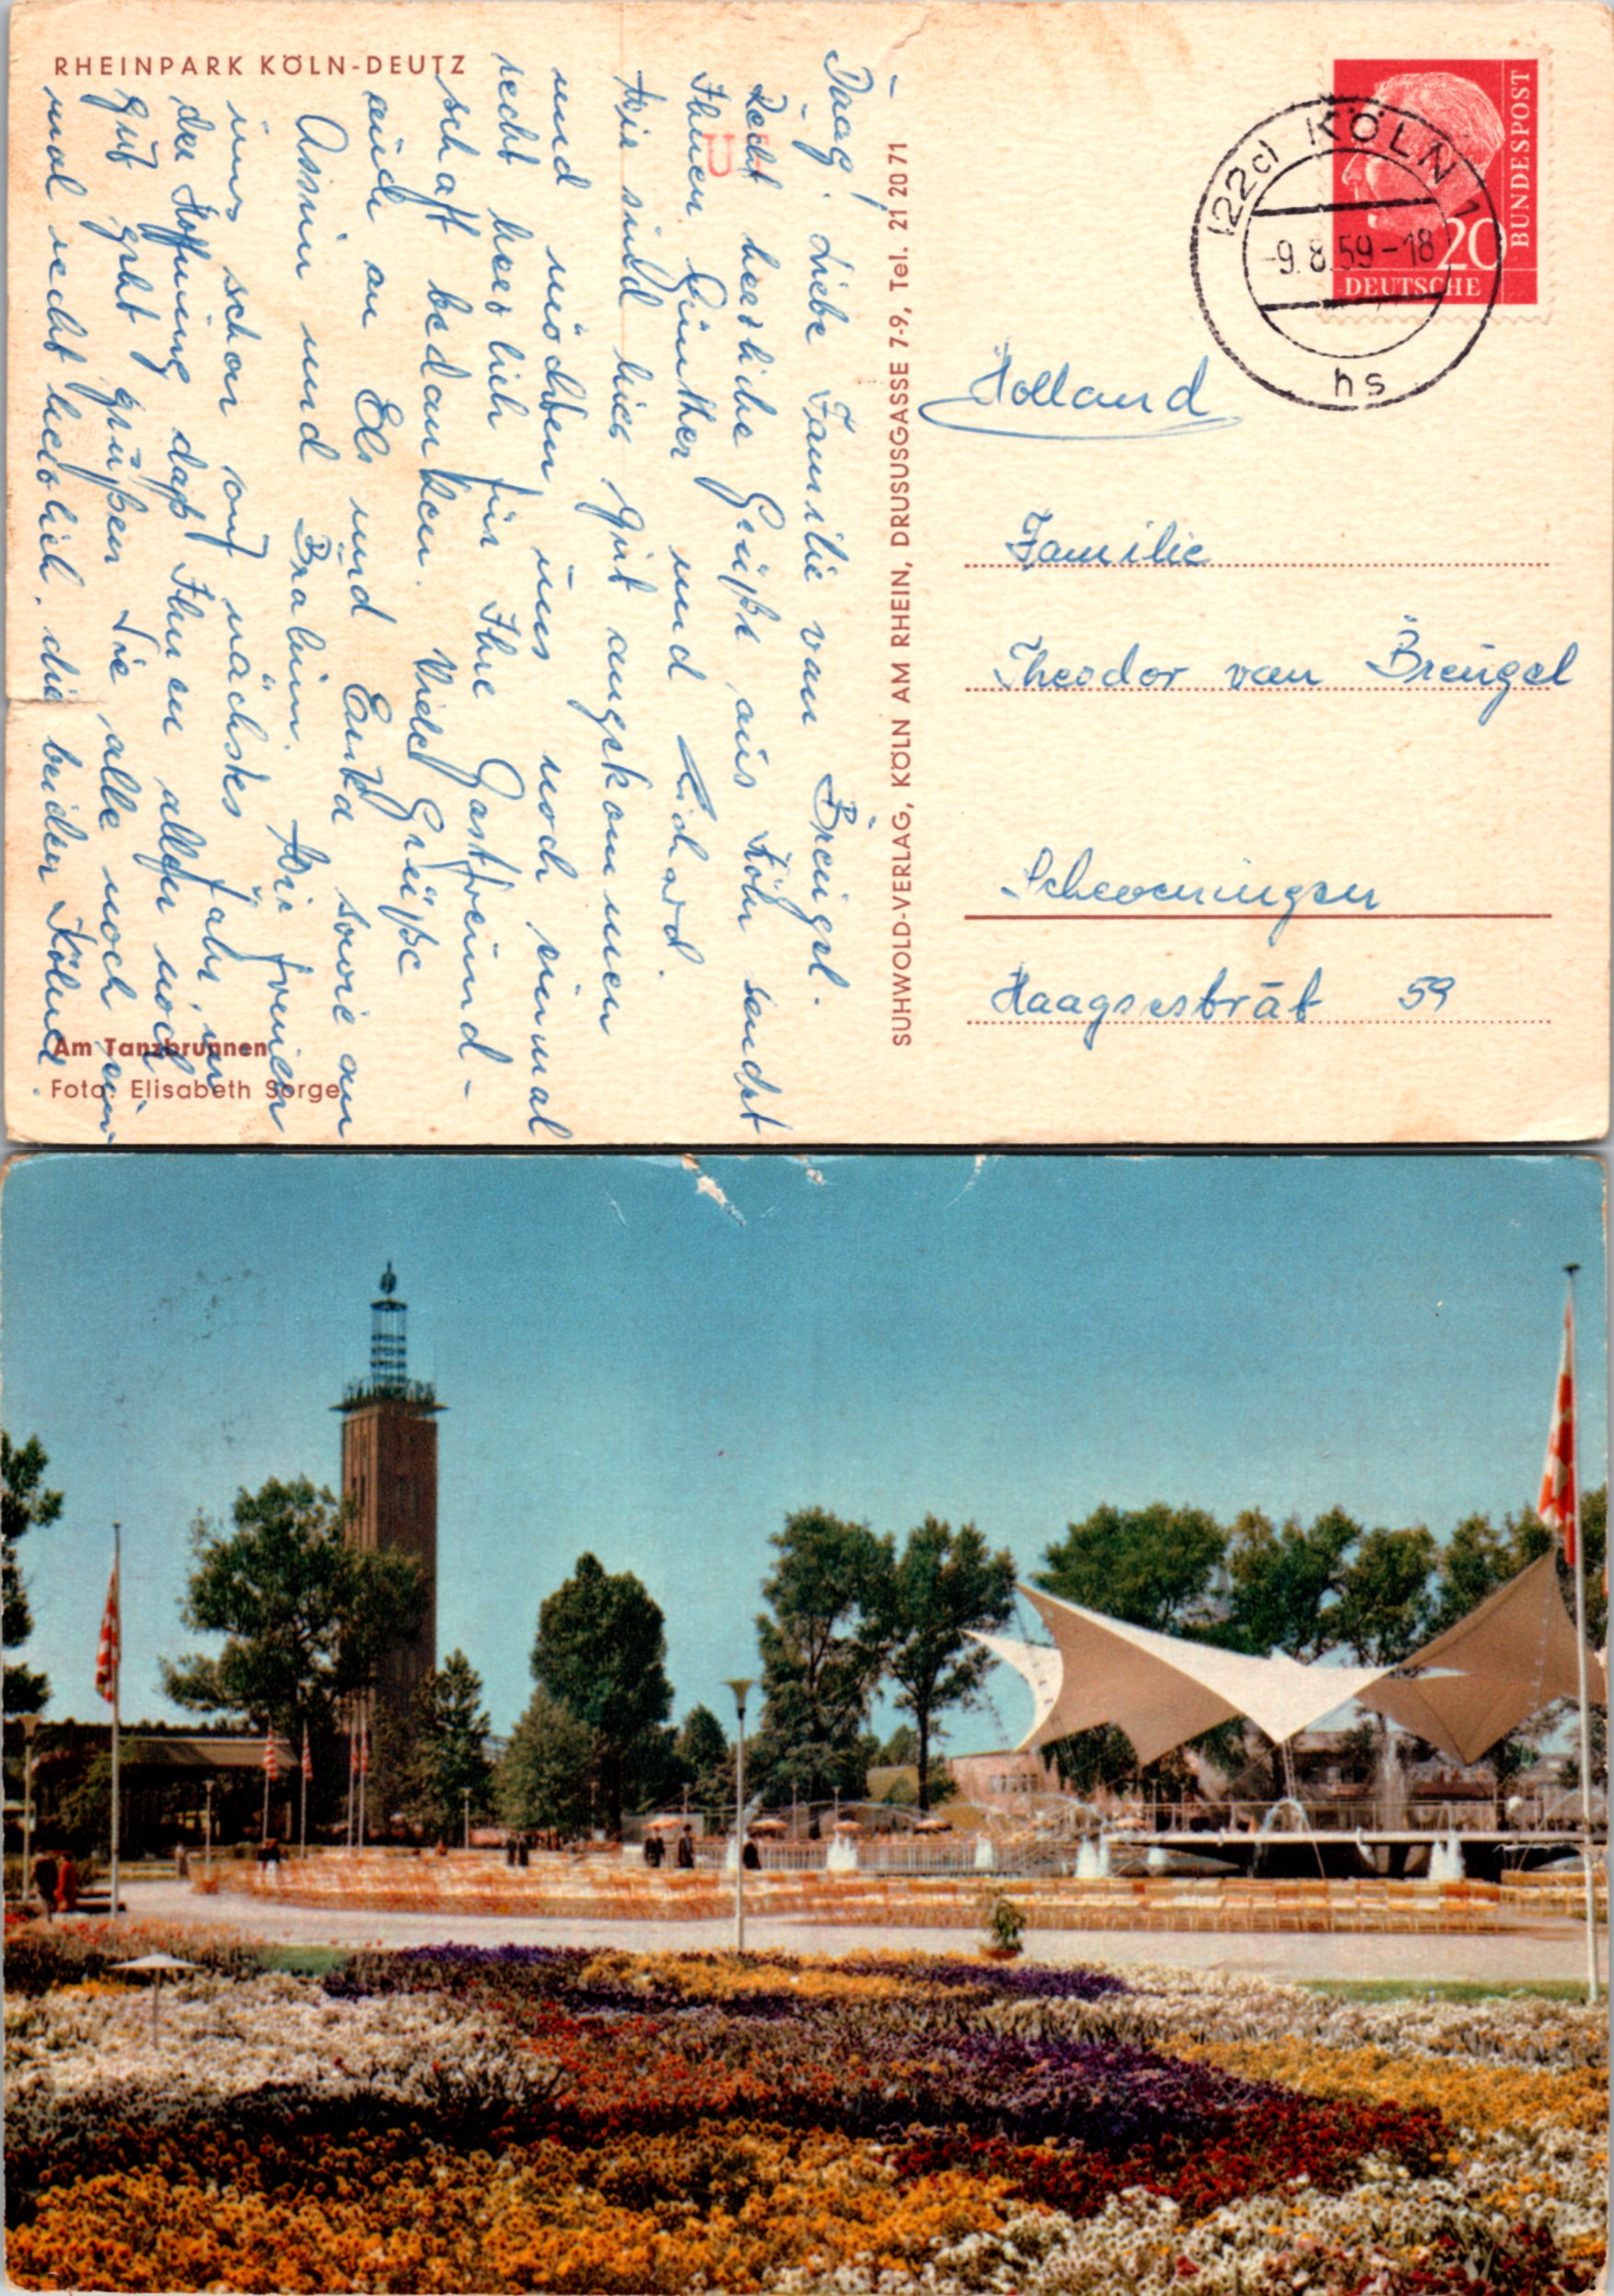 RHEINPARK KÖLN-DEUTZ
Daag! Liebe Familie van Breugel.
Recht herzliche Grüße aus Köln sendet
Ihnen Günther und Richard.
Wir sind hier gut angekommen
und möchten uns noch einmal
recht herzlich für Ihre Gastfreund-
schaft bedanken. Viele Grüße
auch an Els und sowie an
und Wir freuen
uns schon auf nächstes Jahr, in
der Hoffnung daß Ihnen allen noch
gut geht grüßen Sie alle noch ein
mal recht herzlich. die beiden Kölner.
Am Tanzbrunnen
Foto: Elisabeth Sorge
SUHWOLD-VERLAG, KÖLN AM RHEIN, DRUSUSGASSE 7-9, Tel. 21 20 71
DEUTSCHE
BUNDESPOST
20
(22c) KÖLN 1
-9.8.59-18
hs
Holland
Familie
Theodor van Breugel
Scheveningen
Haagsestrāt 59